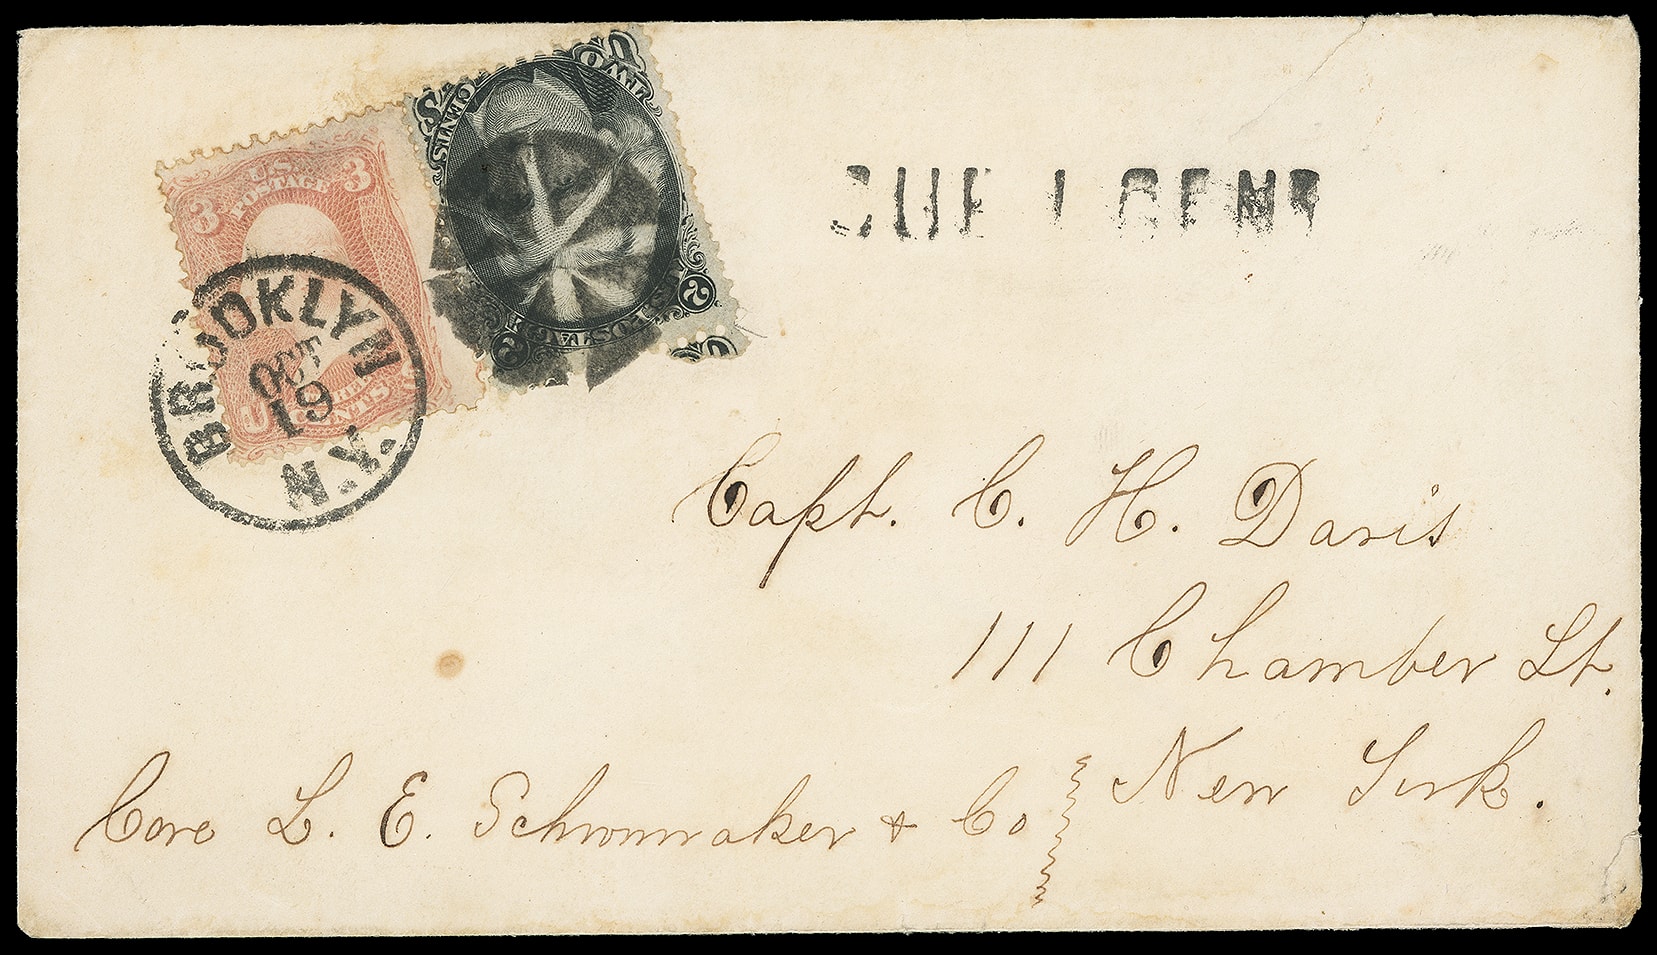 U.S.
POSTAGE
3 3
TWO
CENTS
U S
U.S. POSTAGE
2 2
DUE 1 CENT
BROOKLYN
OCT
19
N.Y.
U
CENTS
Capt. C. H. Davis
111 Chamber St.
New York.
Care L. E. Schoonmaker & Co